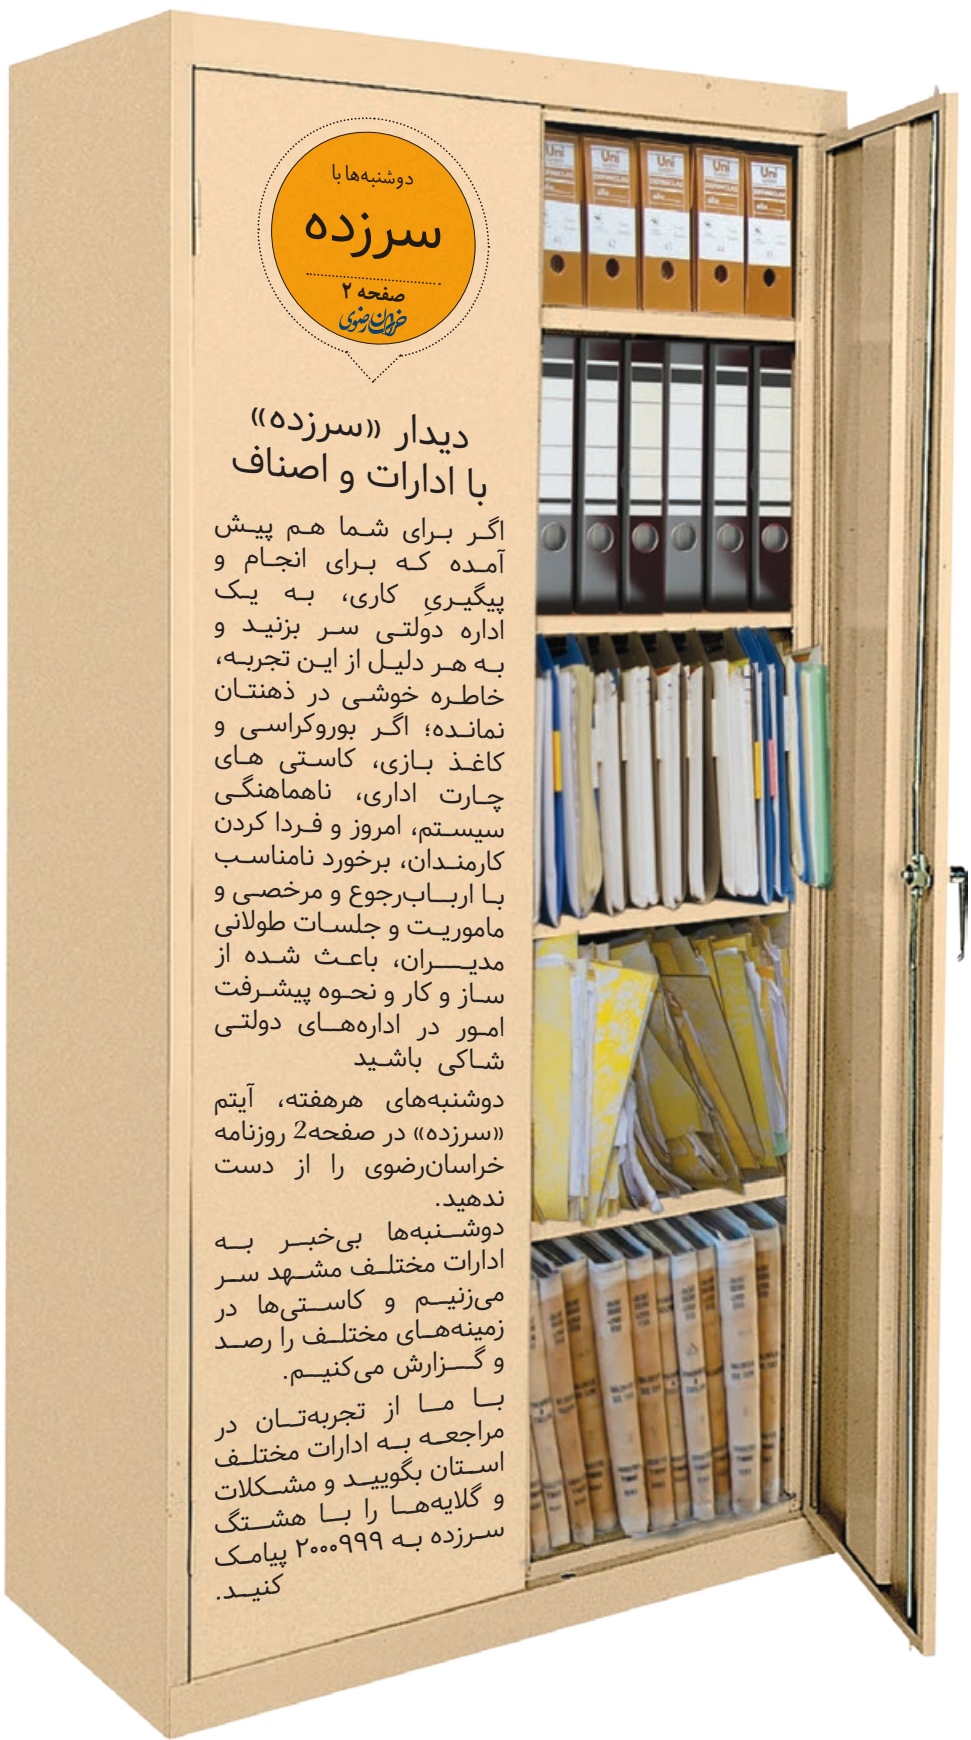 دوشنبه‌ها با
سرزده
صفحه ۲
خراسان رضوی
دیدار «سرزده»
با ادارات و اصناف
اگر برای شما هم پیش
آمده که برای انجام و
پیگیریِ کاری، به یک
اداره دولتی سر بزنید و
به هر دلیل از این تجربه،
خاطره خوشی در ذهنتان
نمانده؛ اگر بوروکراسی و
کاغذ بازی، کاستی های
چارت اداری، ناهماهنگی
سیستم، امروز و فردا کردن
کارمندان، برخورد نامناسب
با ارباب‌رجوع و مرخصی و
ماموریت و جلسات طولانی
مدیران، باعث شده از
ساز و کار و نحوه پیشرفت
امور در اداره‌های دولتی
شاکی باشید
دوشنبه‌های هرهفته، آیتم
«سرزده» در صفحه2 روزنامه
خراسان‌رضوی را از دست
ندهید.
دوشنبه‌ها بی‌خبر به
ادارات مختلف مشهد سر
می‌زنیم و کاستی‌ها در
زمینه‌های مختلف را رصد
و گزارش می‌کنیم.
با ما از تجربه‌تان در
مراجعه به ادارات مختلف
استان بگویید و مشکلات
و گلایه‌ها را با هشتگ
سرزده به ۲۰۰۰۹۹۹ پیامک
کنید.
Uni
Uni
Uni
Uni
Uni